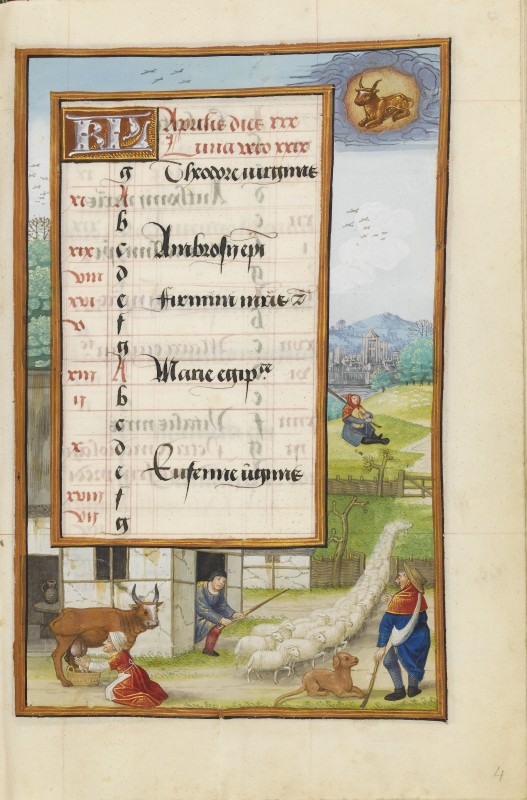 KL Aprilis dies xxx
Luna xxix
g Theodore virginis
xi A
b
xix c Ambrosij epi
viii d
xvi e Firmini mris
v f
g
xiii A Marie egip
ii b
c
x d
e Eufemie virginis
xviii f
vii g
4